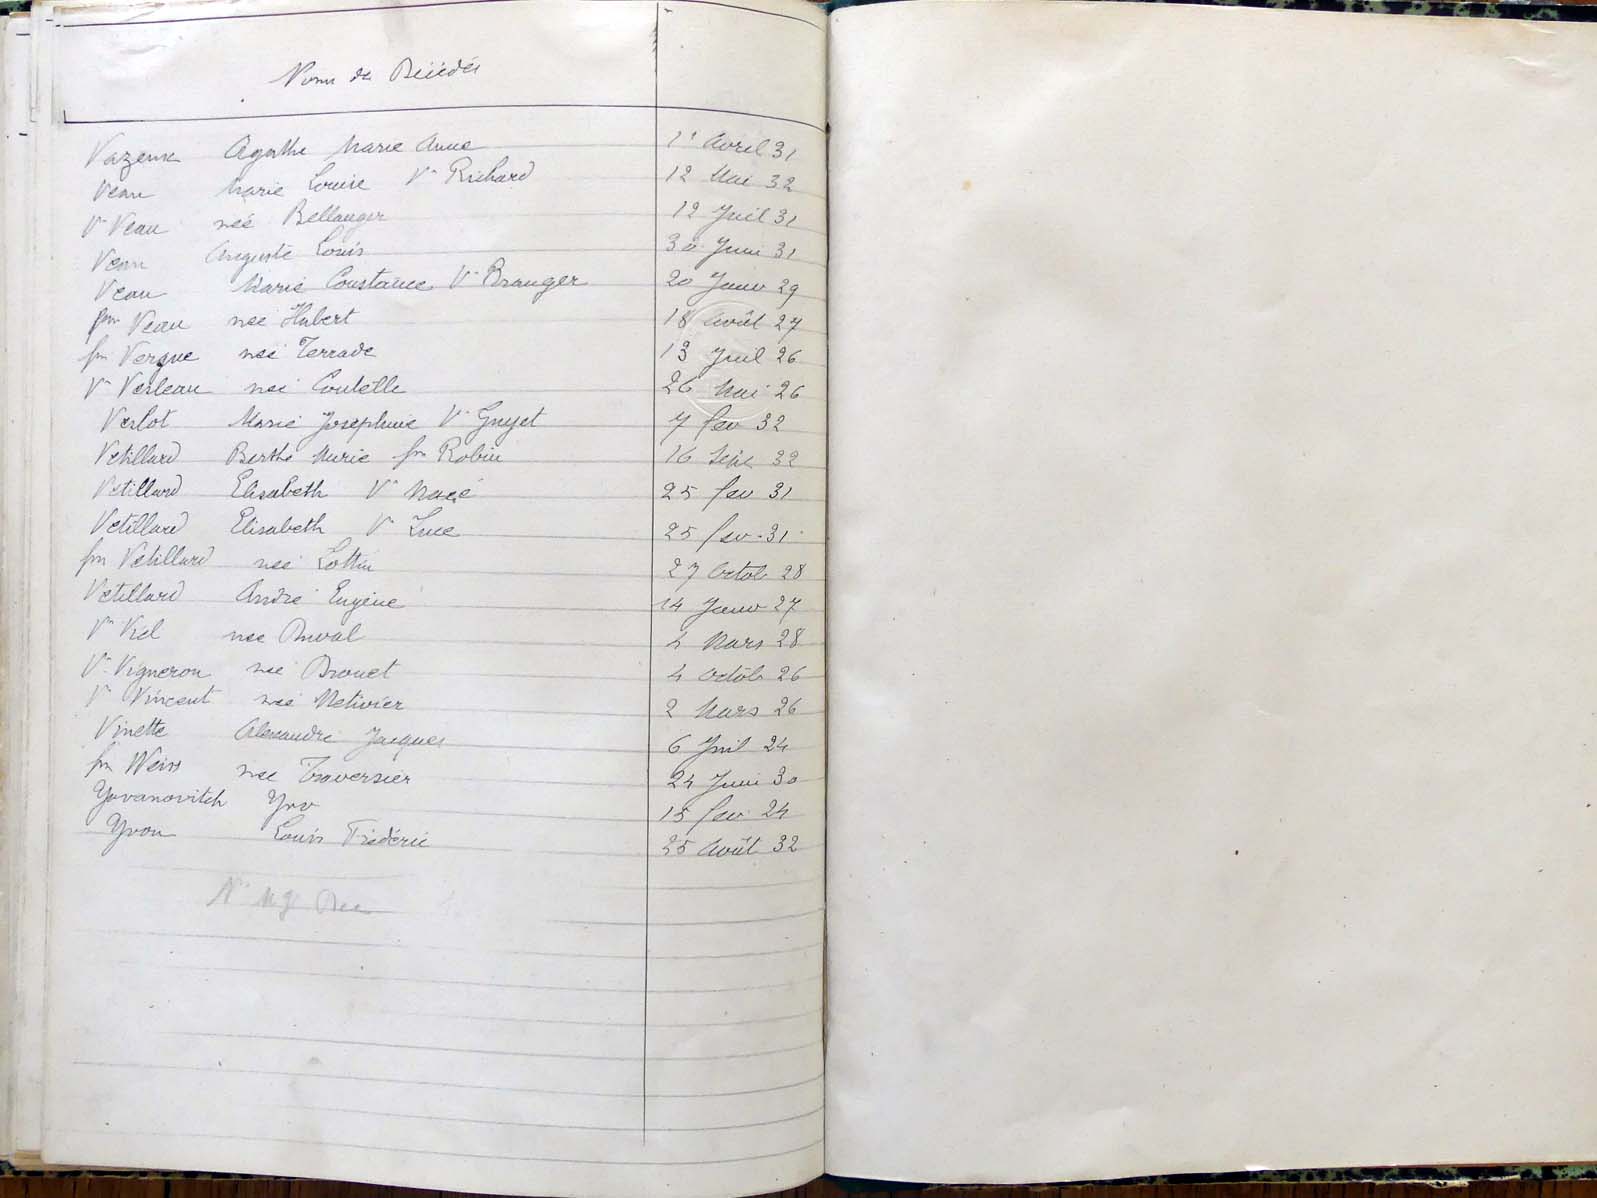 Noms des Décédés
Vazeux Agathe Marie Anne 1r Avril 31
Veau Marie Louise Ve Richard 12 Mai 32
Ve Veau née Bellanger 12 Juil 31
Veau Auguste Louis 30 Juin 31
Veau Marie Constance Ve Branger 20 Janv 29
fm Veau née Hubert 18 Août 27
fm Vergne née Terrade 13 Juil 26
Ve Verleau née Coutelle 26 Mai 26
Verlot Marie Josephine Ve Guyet 7 fev 32
Vetillard Berthe Marie fm Robin 16 Sept 32
Vetillard Elisabeth Ve Macé 25 fev 31
Vetillard Elisabeth Ve Luce 25 fev 31
fm Vetillard née Lottin 27 Octob 28
Vetillard André Eugène 14 Janv 27
Ve Viel née Duval 4 Mars 28
Ve Vigneron née Drouet 4 Octob 26
Ve Vincent née Metivier 2 Mars 26
Vinette Alexandre Jacques 6 Juil 24
fm Weiss née Traversier 24 Juin 30
Yovanovitch Yov 15 fev 24
Yvon Louis Frédéric 25 Août 32